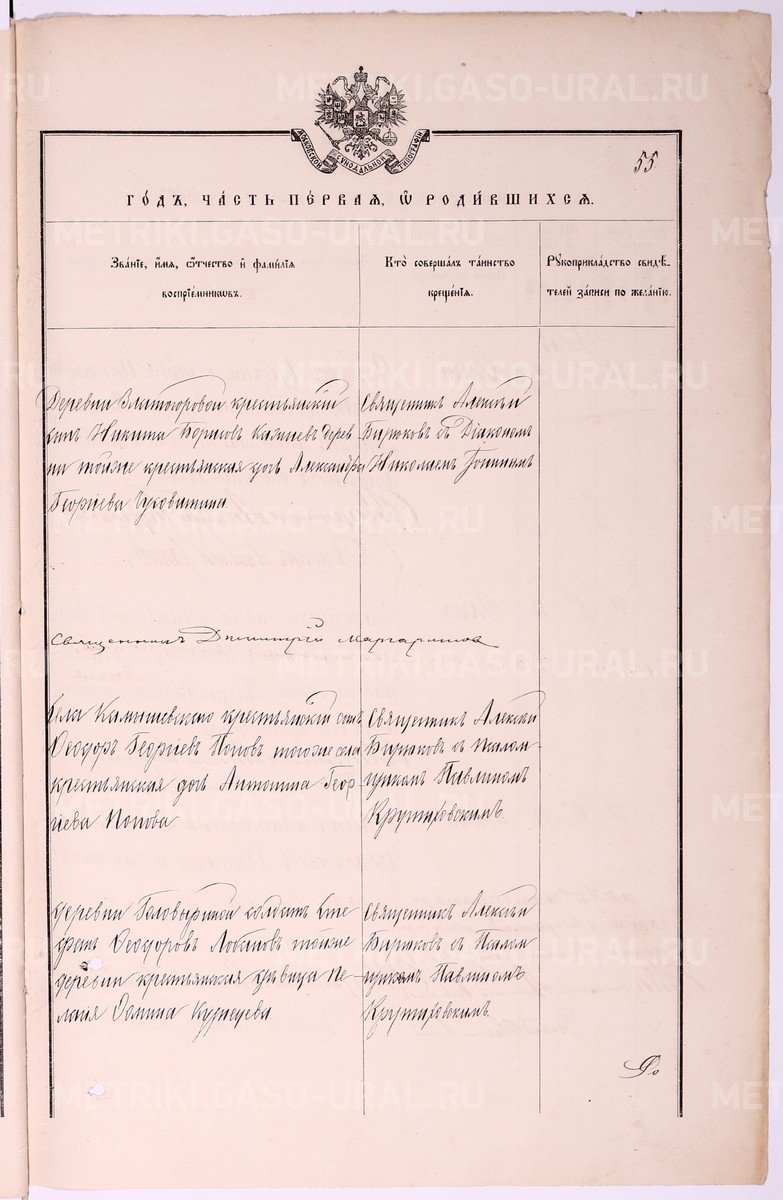 МОСКОВСКОЙ СѴНОДАЛЬНОЙ ТИПОГРАФІИ
55
ГО́ДЪ, ЧА́СТЬ ПЕ́РВАЯ, Ѽ РОДИ́ВШИХСЯ.
Зва́нїе, и҆́мя, ѻ҆́тчество и҆ фами́лїя
воспрїе́мниковъ.
Кто̀ соверша́лъ та́инство
креще́нїя.
Рꙋкоприкла́дство свидѣ́-
телей за́писи по жела́нїю.
Деревни Златогоровой крестьянскій
сынъ Никита Борисовъ дерев
ни тойже крестьянская дочь Александра
Георгіева
Священникъ Алексѣй
Бирюковъ съ Діакономъ
Николаемъ
Священникъ Димитрій Маргаритовъ
Села Камышевскаго крестьянскій сынъ
Ѳеодоръ Георгіевъ Поповъ тогоже села
крестьянская дочь Антонина Геор
гіева Попова.
Священникъ Алексѣй
Бирюковъ съ Псалом-
щикомъ Павлиномъ
Крутиховскимъ.
Деревни Головыриной солдатъ Сте
фанъ Ѳеодоровъ Лобановъ тойже
деревни крестьянская дѣвица Пе-
лагія Ѳомина Кузнецова.
Священникъ Алексѣй
Бирюковъ съ Псалом
щикомъ Павлиномъ
Крутиховскимъ.
METRIKI.GASO-URAL.RU